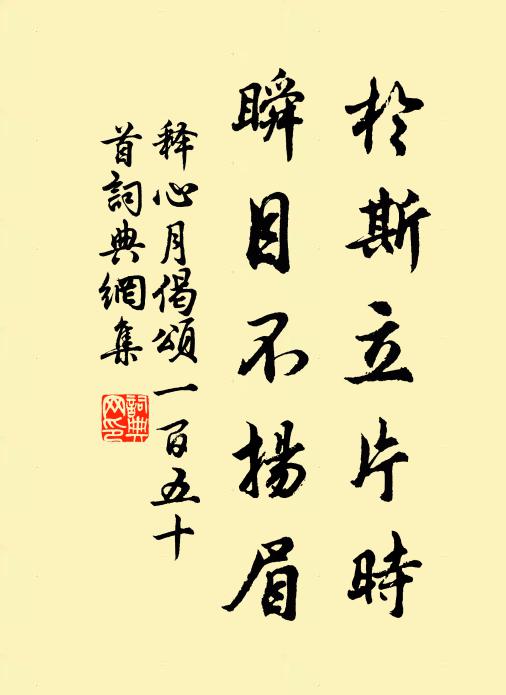 於斯立片時
瞬目不揚眉
释心月偈頌一百五十
首詞典網集
詞典网印